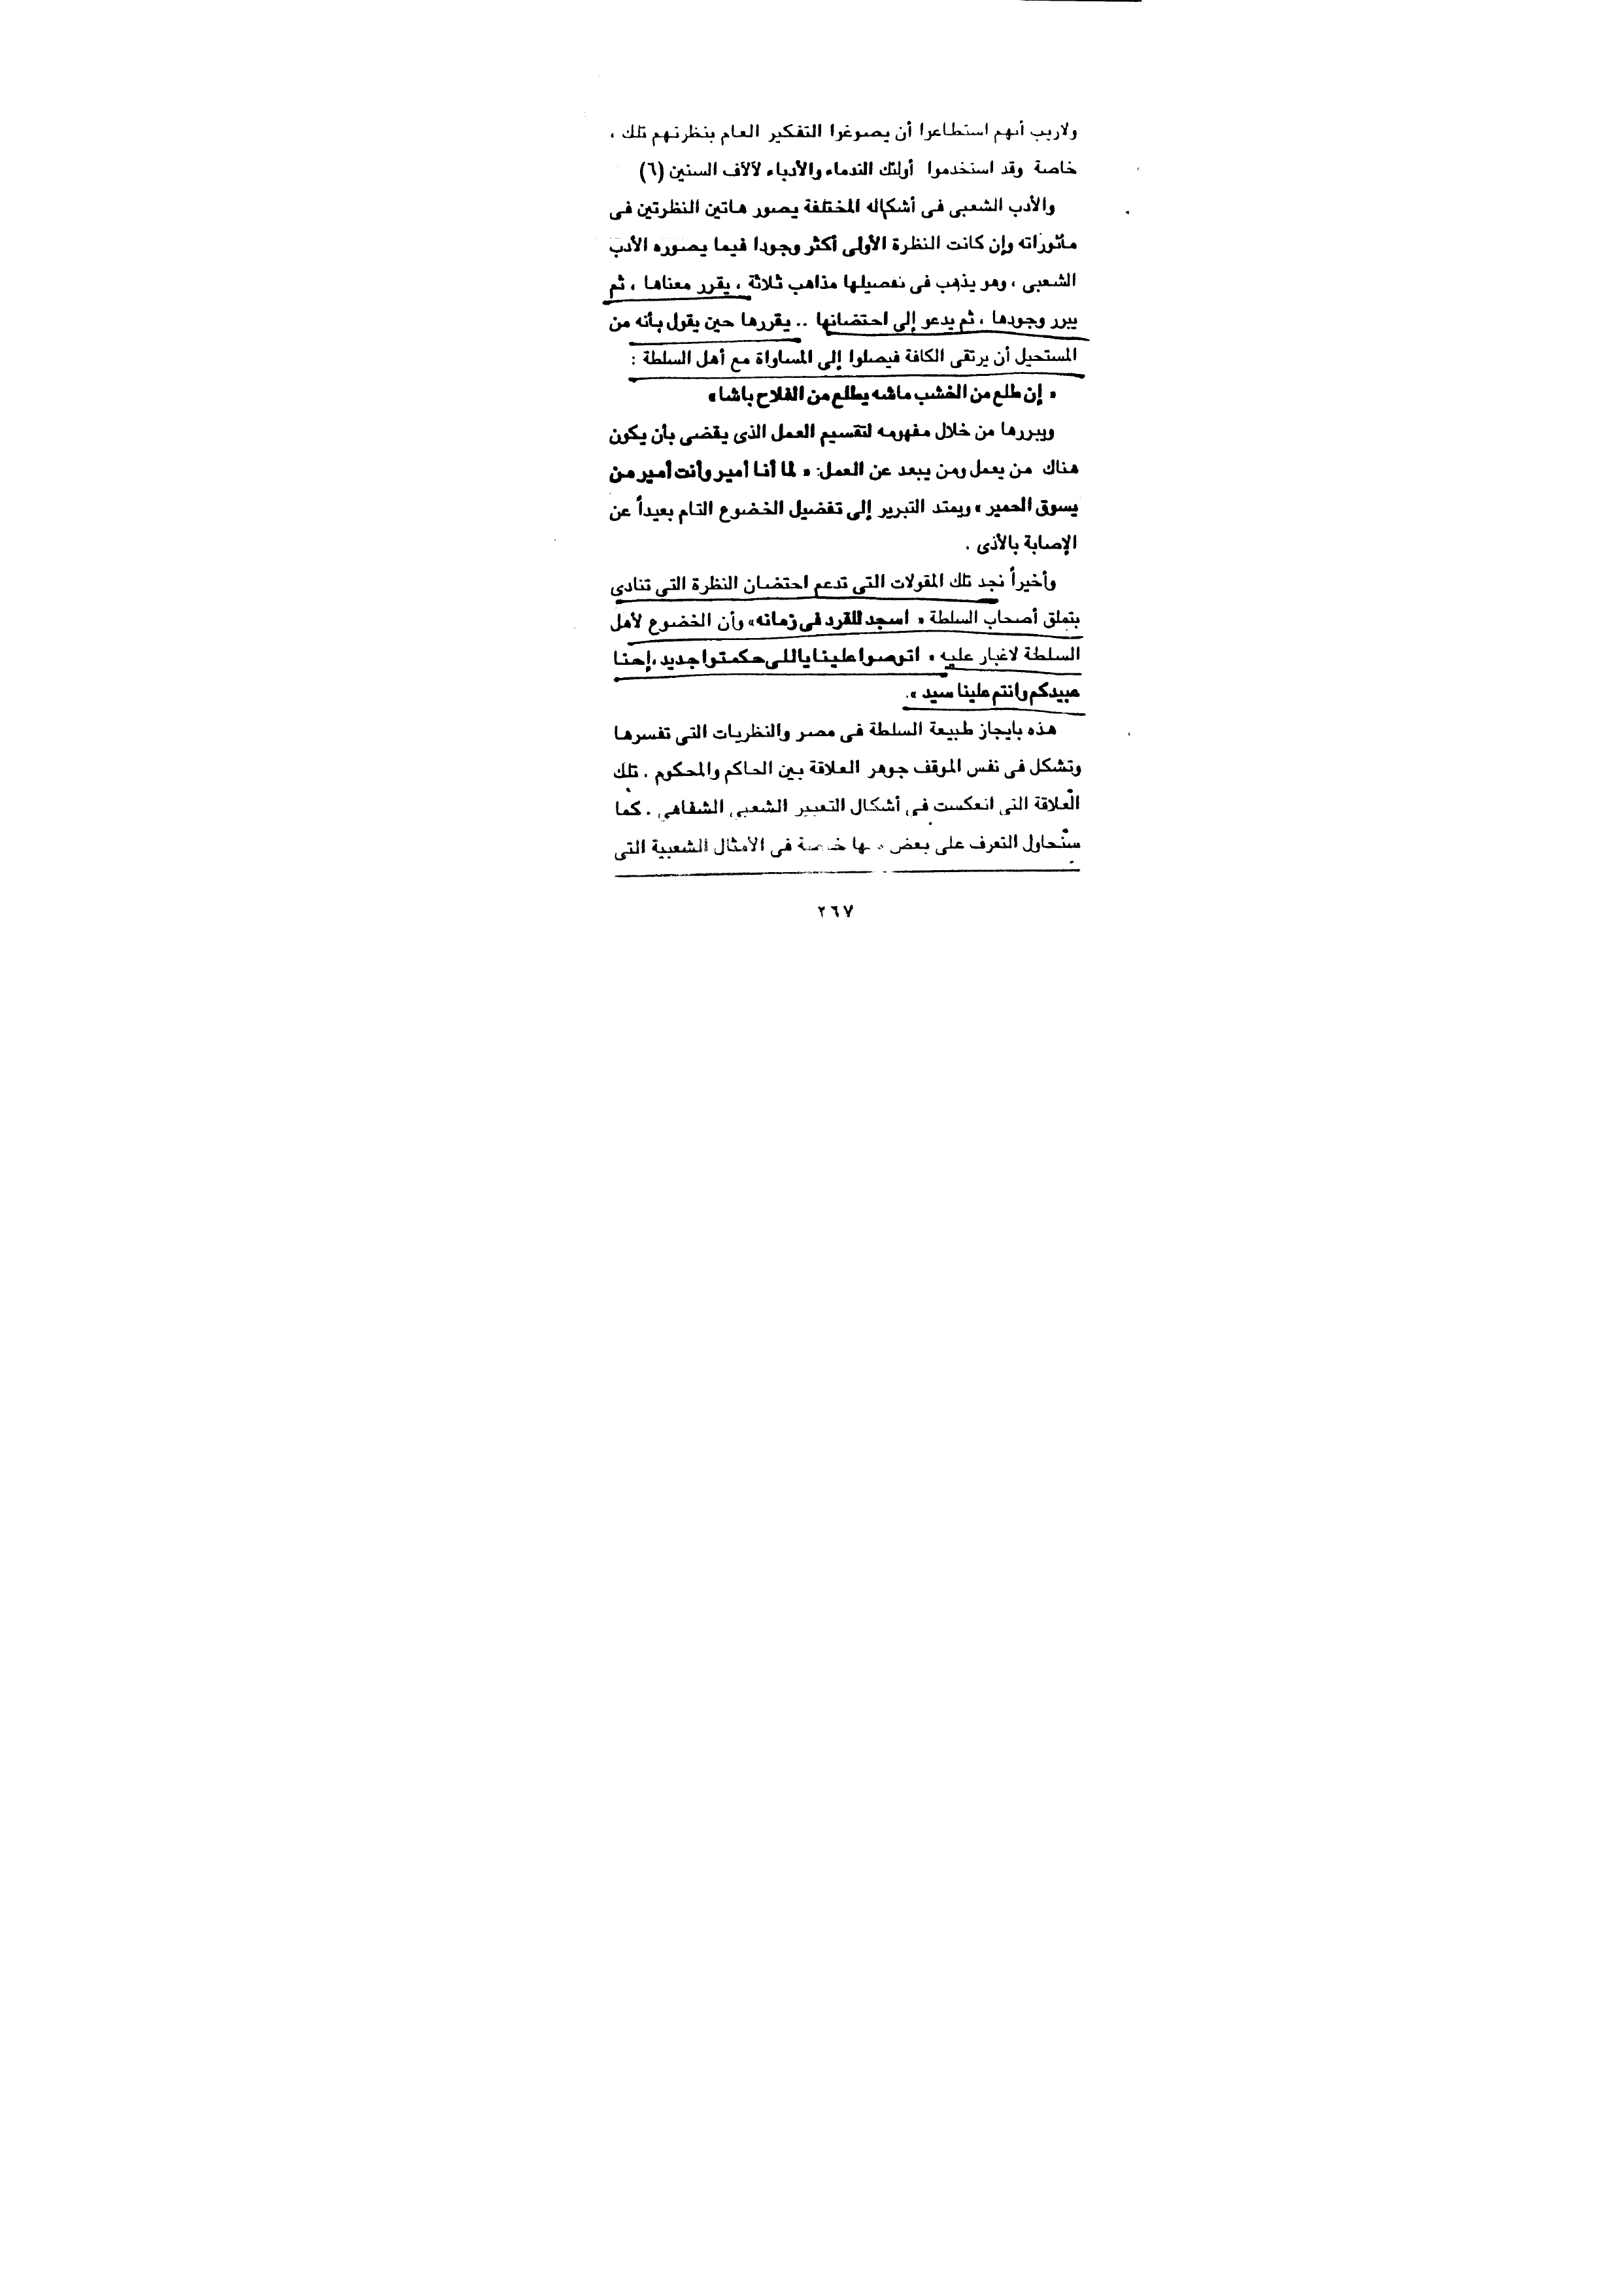 ولاريب أنهم استطاعوا أن يصوغوا التفكير العام بنظرتهم تلك ،
خاصة وقد استخدموا أولئك الندماء والأدباء لآلاف السنين (٦)
والأدب الشعبى فى أشكاله المختلفة يصور هاتين النظرتين فى
مأثوراته وإن كانت النظرة الأولى أكثر وجودا فيما يصوره الأدب
الشعبى ، وهو يذهب فى تفصيلها مذاهب ثلاثة ، يقرر معناها ، ثم
يبرر وجودها ، ثم يدعو إلى احتضانها .. يقررها حين يقول بأنه من
المستحيل أن يرتقى الكافة فيصلوا إلى المساواة مع أهل السلطة :
« إن طلع من الخشب ماشه يطلع من الفلاح باشا»
ويبررها من خلال مفهومه لتقسيم العمل الذى يقضى بأن يكون
هناك من يعمل ومن يبعد عن العمل: « لما أنا أمير وأنت أمير من
يسوق الحمير » ويمتد التبرير إلى تفضيل الخضوع التام بعيداً عن
الإصابة بالأذى .
وأخيراً نجد تلك المقولات التى تدعم احتضان النظرة التى تنادى
بتملق أصحاب السلطة « اسجد للقرد فى زمانه» وأن الخضوع لأهل
السلطة لاغبار عليه « اتوصوا علينا ياللى حكمتوا جديد ، إحنا
عبيدكم وانتم علينا سيد ».
هذه بايجاز طبيعة السلطة فى مصر والنظريات التى تفسرها
وتشكل فى نفس الموقف جوهر العلاقة بين الحاكم والمحكوم . تلك
العلاقة التى انعكست فى أشكال التعبير الشعبى الشفاهى . كما
سنحاول التعرف على بعض خاصة فى الأمثال الشعبية التى
٢٦٧